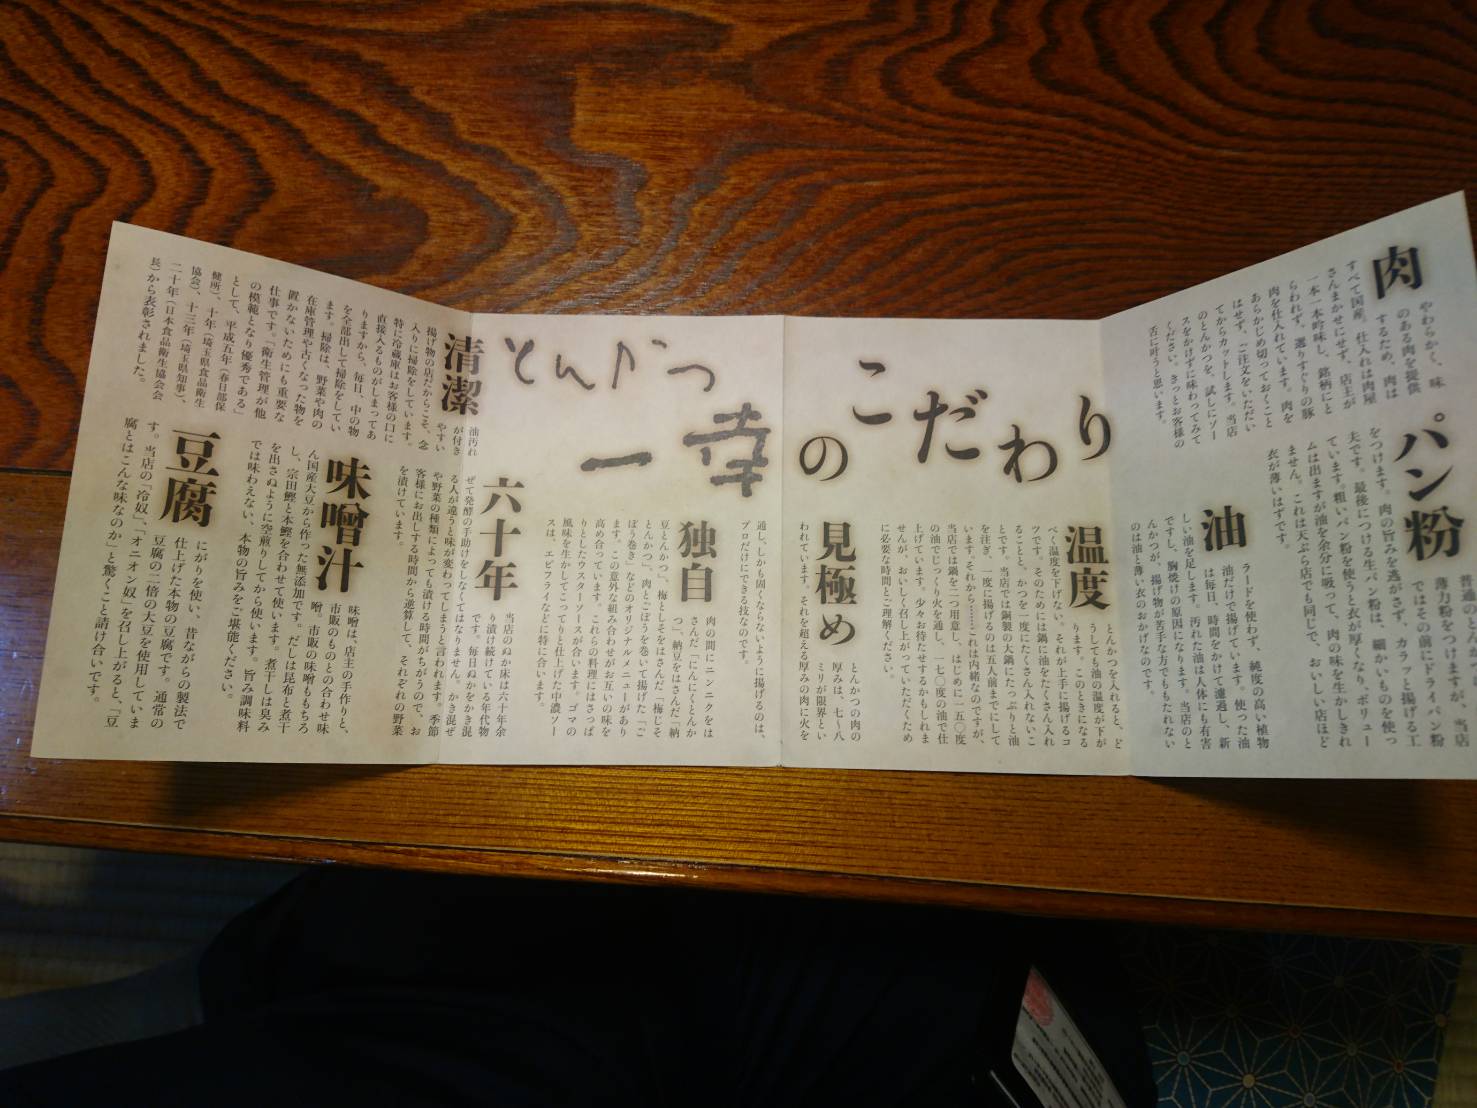 とんかつ
一幸
のこだわり
肉
やわらかく、味
のある肉を提供
するため、肉は
すべて国産。仕入れは肉屋
さんまかせにせず、店主が
一本一本吟味し、銘柄にと
らわれず、選りすぐりの豚
肉を仕入れています。肉を
あらかじめ切っておくこと
はせず、ご注文をいただい
てからカットします。当店
のとんかつを、試しにソー
スをかけずに味わってみて
ください。きっとお客様の
舌に叶うと思います。
パン粉
普通のとんかつは
薄力粉をつけますが、当店
ではその前にドライパン粉
をつけます。肉の旨みを逃がさず、カラッと揚げる工
夫です。最後につける生パン粉は、細かいものを使っ
ています。粗いパン粉を使うと衣が厚くなり、ボリュー
ムは出ますが油を余分に吸って、肉の味を生かしきれ
ません。これは天ぷら店でも同じで、おいしい店ほど
衣が薄いはずです。
油
ラードを使わず、純度の高い植物
油だけで揚げています。使った油
は毎日、時間をかけて濾過し、新
しい油を足します。汚れた油は人体にも有害
ですし、胸焼けの原因になります。当店のと
んかつが、揚げ物が苦手な方でももたれない
のは油と薄い衣のおかげなのです。
温度
とんかつを入れると、ど
うしても油の温度が下が
ります。このときになる
べく温度を下げない。それが上手に揚げるコ
ツです。そのためには鍋に油をたくさん入れ
ることと、かつを一度にたくさん入れないこ
とです。当店では鍋製の大鍋にたっぷりと油
を注ぎ、一度に揚げるのは五人前までにして
います。それから……これは内緒なのですが、
当店では鍋を二つ用意し、はじめに一五〇度
の油でじっくり火を通し、一七〇度の油で仕
上げています。少々お待たせするかもしれま
せんが、おいしく召し上がっていただくため
に必要な時間とご理解ください。
見極め
とんかつの肉の
厚みは、七〜八
ミリが限界とい
われています。それを超える厚みの肉に火を
通し、しかも固くならないように揚げるのは、
プロだけにできる技なのです。
独自
肉の間にニンニクをは
さんだ「にんにくとんか
つ」、納豆をはさんだ「納
豆とんかつ」、梅としそをはさんだ「梅じそ
とんかつ」、肉とごぼうを巻いて揚げた「ご
ぼう巻き」などのオリジナルメニューがあり
ます。この意外な組み合わせがお互いの味を
高め合っています。これらの料理にはさっぱ
りとしたウスターソースが合います。ゴマの
風味を生かしてこってりと仕上げた中濃ソー
スは、エビフライなどに特に合います。
六十年
当店のぬか床は六十年余
り漬け続けている年代物
です。毎日ぬかをかき混
ぜて発酵の手助けをしなくてはなりません。かき混ぜ
る人が違うと味が変わってしまうと言われます。季節
や野菜の種類によっても漬ける時間がちがうので、お
客様にお出しする時間から逆算して、それぞれの野菜
を漬けています。
清潔
油汚れ
が付き
やすい
揚げ物の店だからこそ、念
入りに掃除をしています。
特に冷蔵庫はお客様の口に
直接入るものがしまってあ
りますから、毎日、中の物
を全部出して掃除をしてい
ます。掃除は、野菜や肉の
在庫管理や古くなった物を
置かないためにも重要な
仕事です。「衛生管理が他
の模範となり優秀である」
として、平成五年（春日部保
健所）、十年（埼玉県食品衛生
協会）、十三年（埼玉県知事）、
二十年（日本食品衛生協会会
長）から表彰されました。
味噌汁
味噌は、店主の手作りと、
市販のものとの合わせ味
噌。市販の味噌ももちろ
ん国産大豆から作った無添加です。だしは昆布と煮干
し、宗田鰹と本鰹を合わせて使います。煮干しは臭み
を出さぬように空煎りしてから使います。旨み調味料
では味わえない、本物の旨みをご堪能ください。
豆腐
にがりを使い、昔ながらの製法で
仕上げた本物の豆腐です。通常の
豆腐の二倍の大豆を使用していま
す。当店の「冷奴」、「オニオン奴」を召し上がると、「豆
腐とはこんな味なのか」と驚くこと請け合いです。